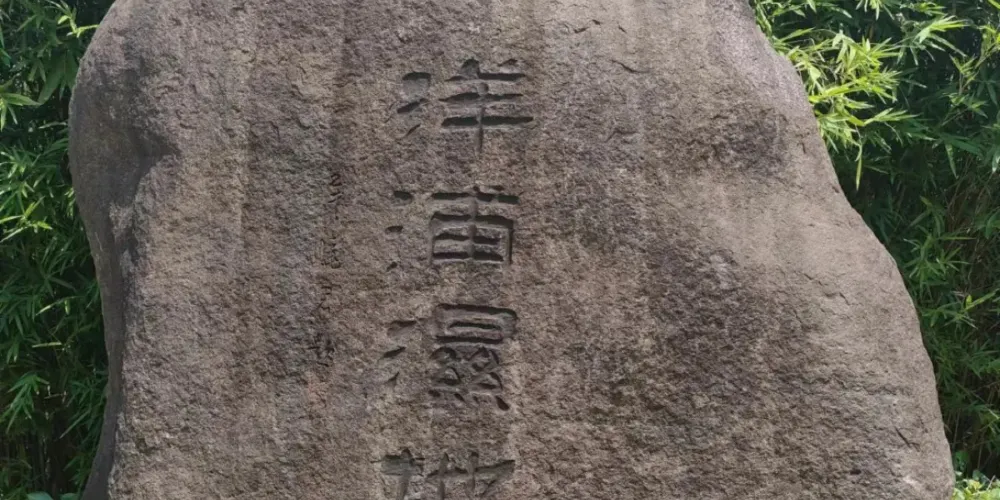 洋浦濕地